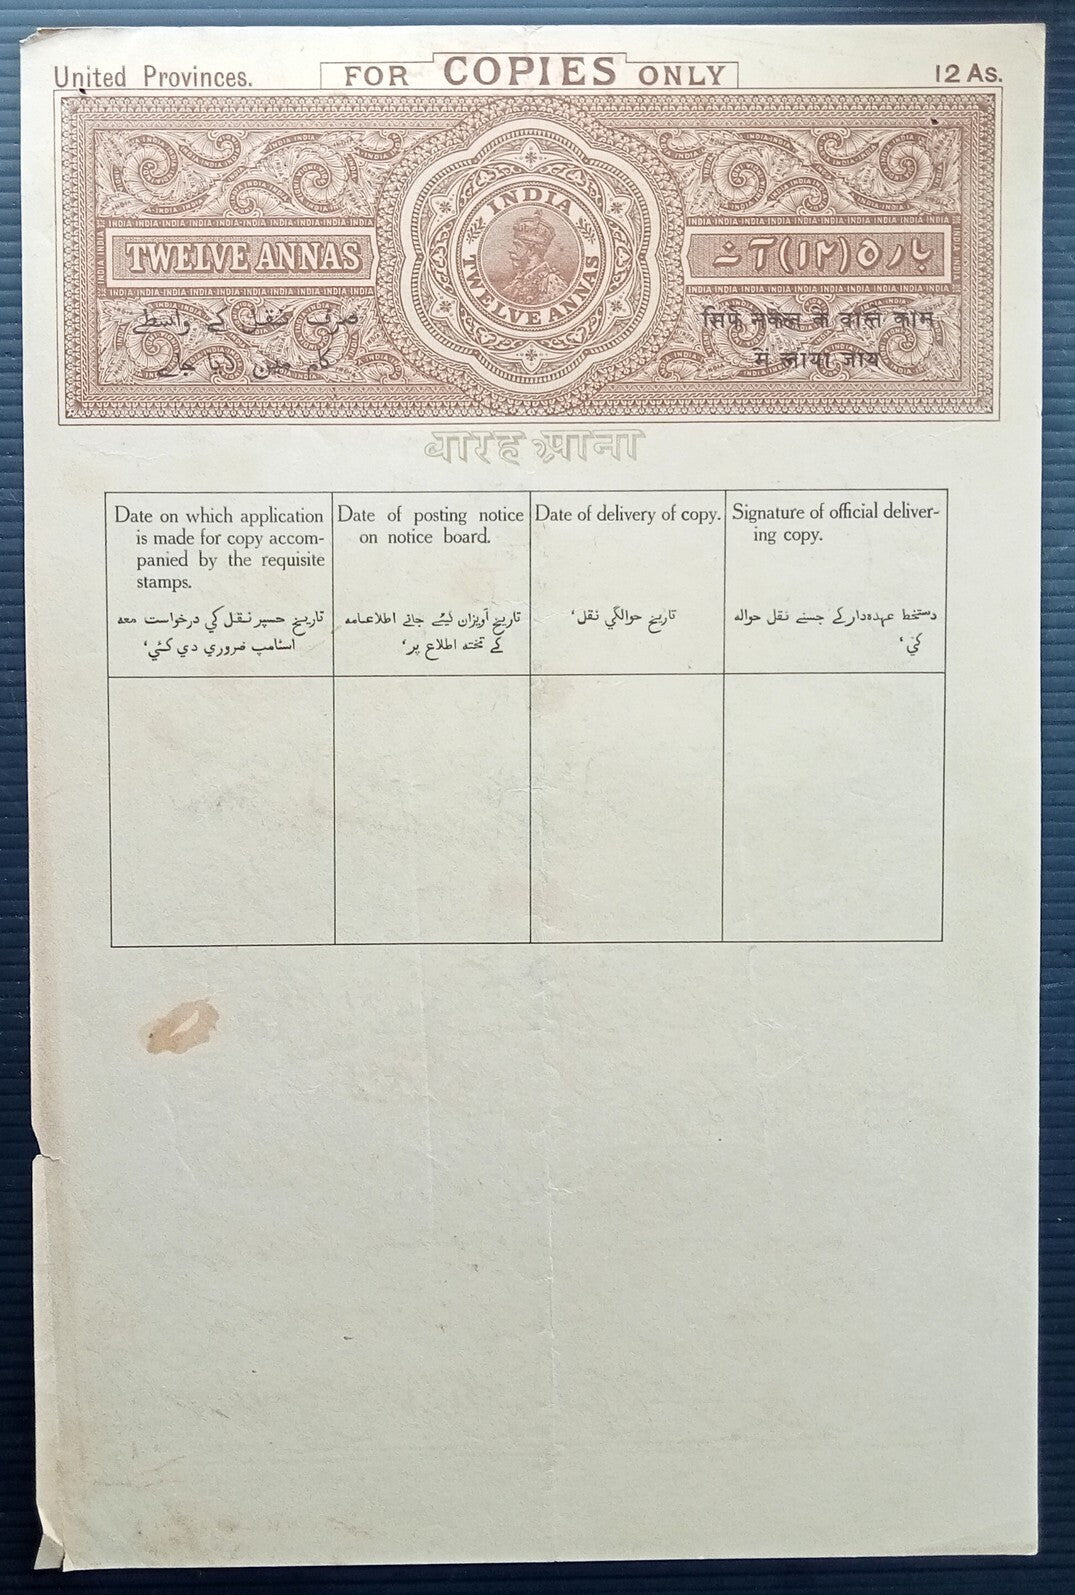 United Provinces.
FOR COPIES ONLY
12 As.
INDIA
TWELVE ANNAS
TWELVE ANNAS
بارہ (۱۲) آنہ
صرف نقل کے واسطے
کام مین لایا جاے
सिर्फ नकल के वास्ते काम
में लाया जाय
बारह आना
Date on which application
is made for copy accom-
panied by the requisite
stamps.
تاریخ جسپر نقل کي درخواست معه
اسٹامپ ضروري دي گئي،
Date of posting notice
on notice board.
تاریخ آویزان کیئے جانے اطلاعنامه
کے تخته اطلاع پر،
Date of delivery of copy.
تاریخ حوالگي نقل،
Signature of official deliver-
ing copy.
دستخط عہدہ‌دار کے جسنے نقل حواله
کي،